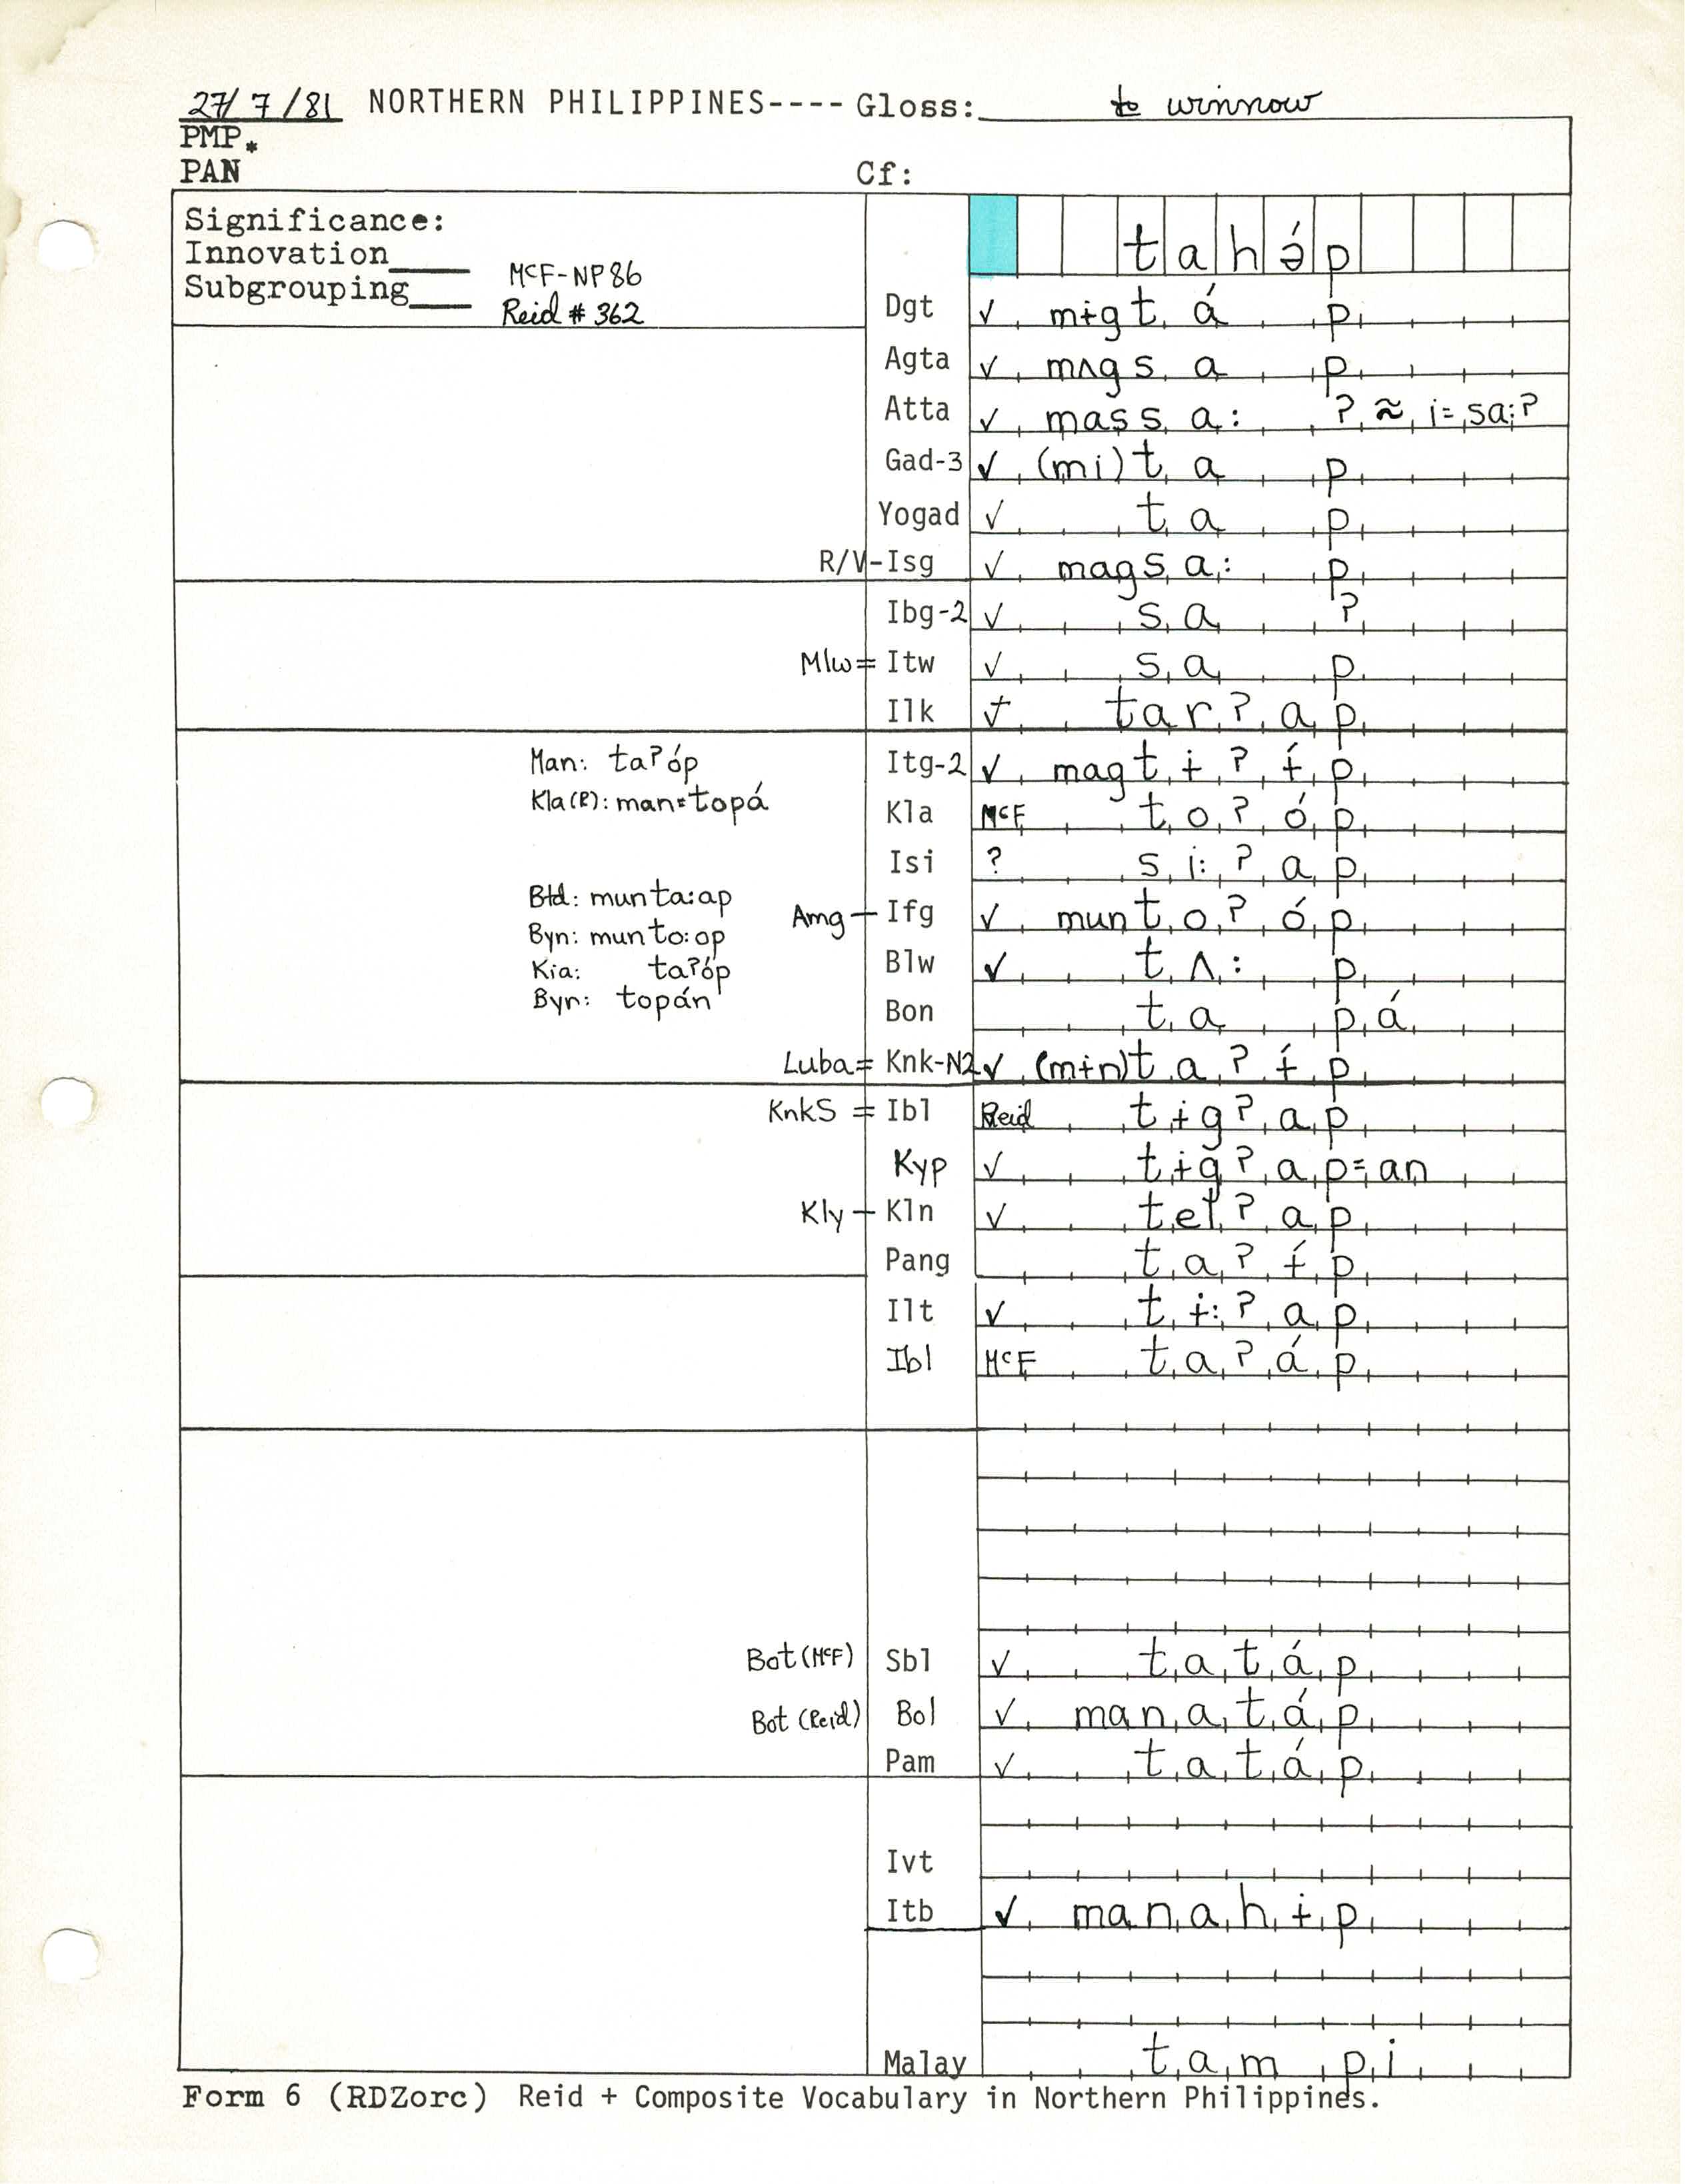 27/7/81 NORTHERN PHILIPPINES---- Gloss: to winnow
PMP*
PAN Cf:
Significance:
Innovation____ McF-NP86
Subgrouping____ Reid # 362
tahə́p
Dgt ✓ mɨgtáp
Agta ✓ mʌgsap
Atta ✓ massa:ʔ ≈ i=sa:ʔ
Gad-3 ✓ (mi)tap
Yogad ✓ tap
R/V-Isg ✓ magsa:p
Ibg-2 ✓ saʔ
Mlw= Itw ✓ sap
Ilk + tarʔap
Man: taʔóp Itg-2 ✓ magtɨʔɨ́p
Kla(R): man=topá Kla McF toʔóp
Isi ? si:ʔap
Btd: munta:ap
Amg - Ifg ✓ muntoʔóp
Byn: munto:op
Kia: taʔóp Blw ✓ tʌ:p
Byn: topán Bon tapá
Luba= Knk-N2 ✓ (mɨn)taʔɨ́p
KnkS = Ibl Reid tɨgʔap
Kyp ✓ tɨgʔap=an
Kly - Kln ✓ telʔap
Pang taʔɨ́p
Ilt ✓ tɨ:ʔap
Ibl McF taʔáp
Bot (McF) Sbl ✓ tatáp
Bot (Reid) Bol ✓ manatáp
Pam ✓ tatáp
Ivt
Itb ✓ manahɨp
Malay tampi
Form 6 (RDZorc) Reid + Composite Vocabulary in Northern Philippines.